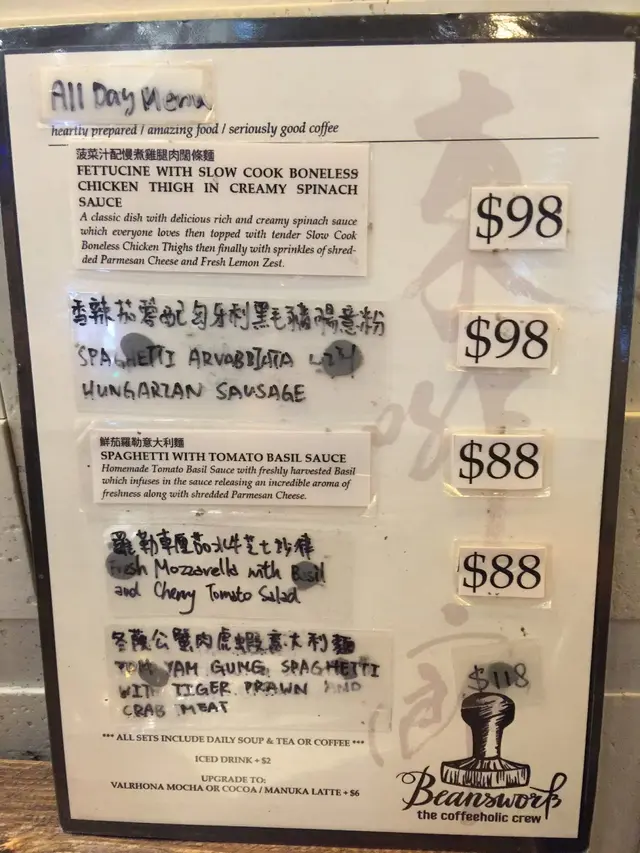 All Day Menu
heartly prepared / amazing food / seriously good coffee
菠菜汁配慢煮雞腿肉闊條麵
FETTUCINE WITH SLOW COOK BONELESS
CHICKEN THIGH IN CREAMY SPINACH
SAUCE
A classic dish with delicious rich and creamy spinach sauce
which everyone loves then topped with tender Slow Cook
Boneless Chicken Thighs then finally with sprinkles of shred-
ded Parmesan Cheese and Fresh Lemon Zest.
$98
香辣茄蓉配匈牙利黑毛豬腸意粉
SPAGHETTI ARVABBIATA
HUNGARIAN SAUSAGE
$98
鮮茄羅勒意大利麵
SPAGHETTI WITH TOMATO BASIL SAUCE
Homemade Tomato Basil Sauce with freshly harvested Basil
which infuses in the sauce releasing an incredible aroma of
freshness along with shredded Parmesan Cheese.
$88
羅勒車厘茄水牛芝士沙律
Fresh Mozzarella with Basil
and Cherry Tomato Salad
$88
冬蔭公蟹肉虎蝦意大利麵
TOM YAM GUNG SPAGHETTI
WITH TIGER PRAWN AND
CRAB MEAT
$118
*** ALL SETS INCLUDE DAILY SOUP & TEA OR COFFEE ***
ICED DRINK + $2
UPGRADE TO:
VALRHONA MOCHA OR COCOA / MANUKA LATTE + $6
Beanswork
the coffeeholic crew